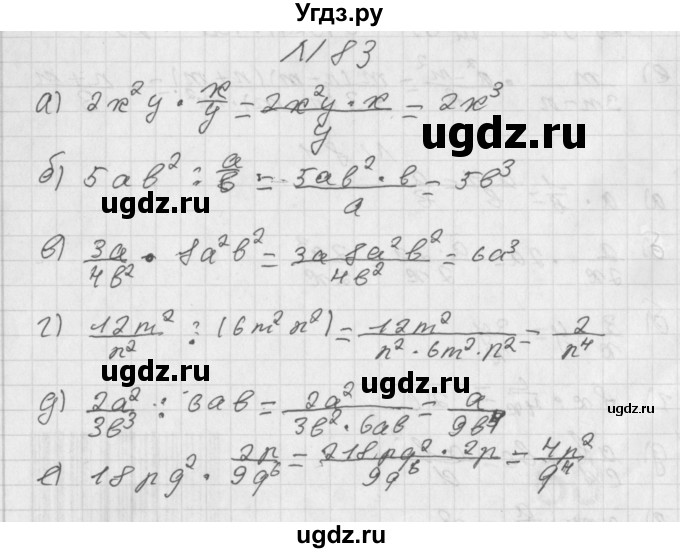 Угдз.ру
№ 83
а) 2x²y · x/y = 2x²y · x / y = 2x³
ugdz.ru
б) 5ab² : a/b = 5ab² · b / a = 5b³
ugdz.ru ugdz.ru
в) 3a/4b² · 8a²b² = 3a 8a²b² / 4b² = 6a³
г) 12m²/n² : (6m²n²) = 12m² / n² · 6m² · n² = 2/n⁴
ugdz.ru ugdz.ru
д) 2a²/3b³ : 6ab = 2a² / 3b² · 6ab = a/9b⁴
е) 18pq² · 2p/9q⁶ = 218pq² · 2p / 9q⁶ = 4p²/q⁴
ugdz.ru ugdz.ru
Угдз.ру